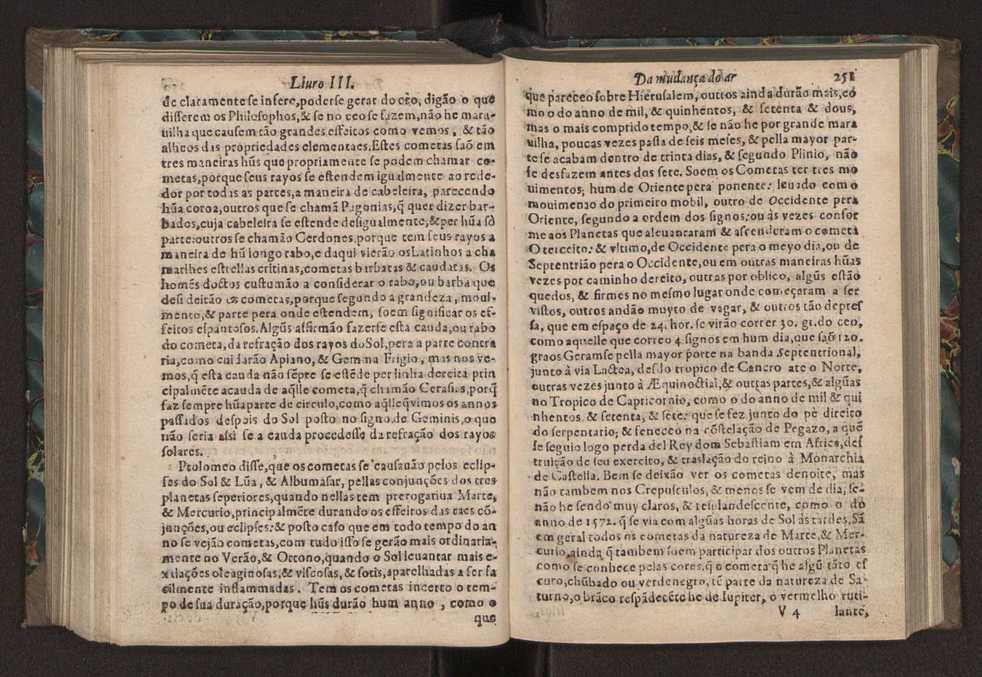 Liuro III.
de claramente se infere,poderse gerar do ceo, digão o que
differem os Philosophos,& se no ceo se fazem,não he mara-
uilha que causem tão grandes effeitos como vemos, & tão
alheos das propriedades elementaes.Estes cometas saõ em
tres maneiras hũs que propriamente se podem chamar co-
metas,porque seus rayos se estendem igualmente ao rede-
dor por todas as partes,a maneira de cabeleira, parecendo
hũa coroa,outros que se chamã Pagonias,q̃ quer dizer bar-
bados,cuja cabeleira se estende desigualmente,& per hũa sò
parte:outros se chamão Cerdones,porque tem seus rayos a
maneira de hũ longo rabo,e daqui vierão os Latinhos a cha
mar lhes estrellas critinas,cometas barbatas & caudatas. Os
homẽs doctos custumão a considerar o rabo,ou barba que
desi deitão os cometas,porque segundo a grandeza, moui-
mento,& parte pera onde estendem, soem significar os ef-
feitos espantosos.Algũs affirmão fazerse esta cauda,ou rabo
do cometa,da refração dos rayos do Sol,pera a parte contra
ria,como cuidarão Apiano, & Gemma Frigio, mas nos ve-
mos,q̃ esta cauda não sẽpre se estẽde per linha dereita prin
cipalmẽte a cauda de aq̃lle cometa,q̃ chamão Cerasus,porq̃
faz sempre hũa parte de circulo,como aq̃lle q̃ vimos os annos
passados despois do Sol posto no signo de Geminis,o que
não seria assi se a cauda procedesse da refração dos rayos
solares.
Ptolomeo disse,que os cometas se causauão pelos eclip-
ses do Sol & Lũa, & Albumasar, pellas conjunções dos tres
planetas seperiores,quando nellas tem prerogatiua Marte,
& Mercurio,principalmẽte durando os effeitos das taes cõ-
junções,ou eclipses: & posto caso que em todo tempo do an
no se vejão cometas,com tudo isso se gerão mais ordinaria-
mente no Verão,& Otono,quando o Sol leuantar mais e-
xalações oleaginosas,& viscosas, & sotis,aparelhadas a ser fa
cilmente inflammadas. Tem os cometas incerto o tem-
po de sua duração,porque hũs durão hum anno , como o
que
Da mudança do ar
251
que pareceo sobre Hierusalem, outros ainda durão mais,co
mo o do anno de mil, & quinhentos, & setenta & dous,
mas o mais comprido tempo,& se não he por grande mara
uilha, poucas vezes passa de seis meses, & pella mayor par-
te se acabam dentro de trinta dias, & segundo Plinio, não
se desfazem antes dos sete. Soem os Cometas ter tres mo
uimentos; hum de Oriente pera ponente: leuado com o
mouimento do primeiro mobil, outro de Occidente pera
Oriente, segundo a ordem dos signos:ou às vezes confor
me aos Planetas que aleuantaram & ascenderam o cometa
O terceito: & vltimo,de Occidente pera o meyo dia,ou de
Septentrião pera o Occidente,ou em outras maneiras hũas
vezes por caminho dereito, outras por oblico, algũs estão
quedos, & firmes no mesmo lugar onde começaram a ser
vistos, outros andão muyto de vagar, & outros tão depres
sa, que em espaço de 24. hor. se virão correr 30. gr.do ceo,
como aquelle que correo 4.signos em hum dia,que saõ 120.
graos Geramse pella mayor porte na banda Septentrional,
junto à via Lactea, desdo tropico de Cancro ate o Norte,
outras vezes junto à Æquinoctial,& outras partes,& algũas
no Tropico de Capricornio, como o do anno de mil & qui
nhentos. & setenta, & sete: que se fez junto do pè direito
do serpentario; & feneceo na cõstelação de Pegazo, a quẽ
se seguio logo perda del Rey dom Sebastiam em Africa,des
truição de seu exercito, & traslação do reino à Monarchia
de Castella. Bem se deixão ver os cometas denoite, mas
não tambem nos Crepusculos,& menos se vem de dia, se-
não he sendo muy claros, & resplandescente, como o do
anno de 1572. q̃ se via com algũas horas de Sol às tardes,Sã
em geral todos os cometas da natureza de Marte,& Mer-
curio,ainda q̃ tambem soem participar dos outros Planetas
como se conhece pelas cores,q̃ o cometa q̃ he algũ tãto es
curo,chũbado ou verdenegro, tẽ parte da natureza de Sa-
turno,o brãco respãdecẽte he de Iupiter, o vermelho ruti-
V 4
lante,